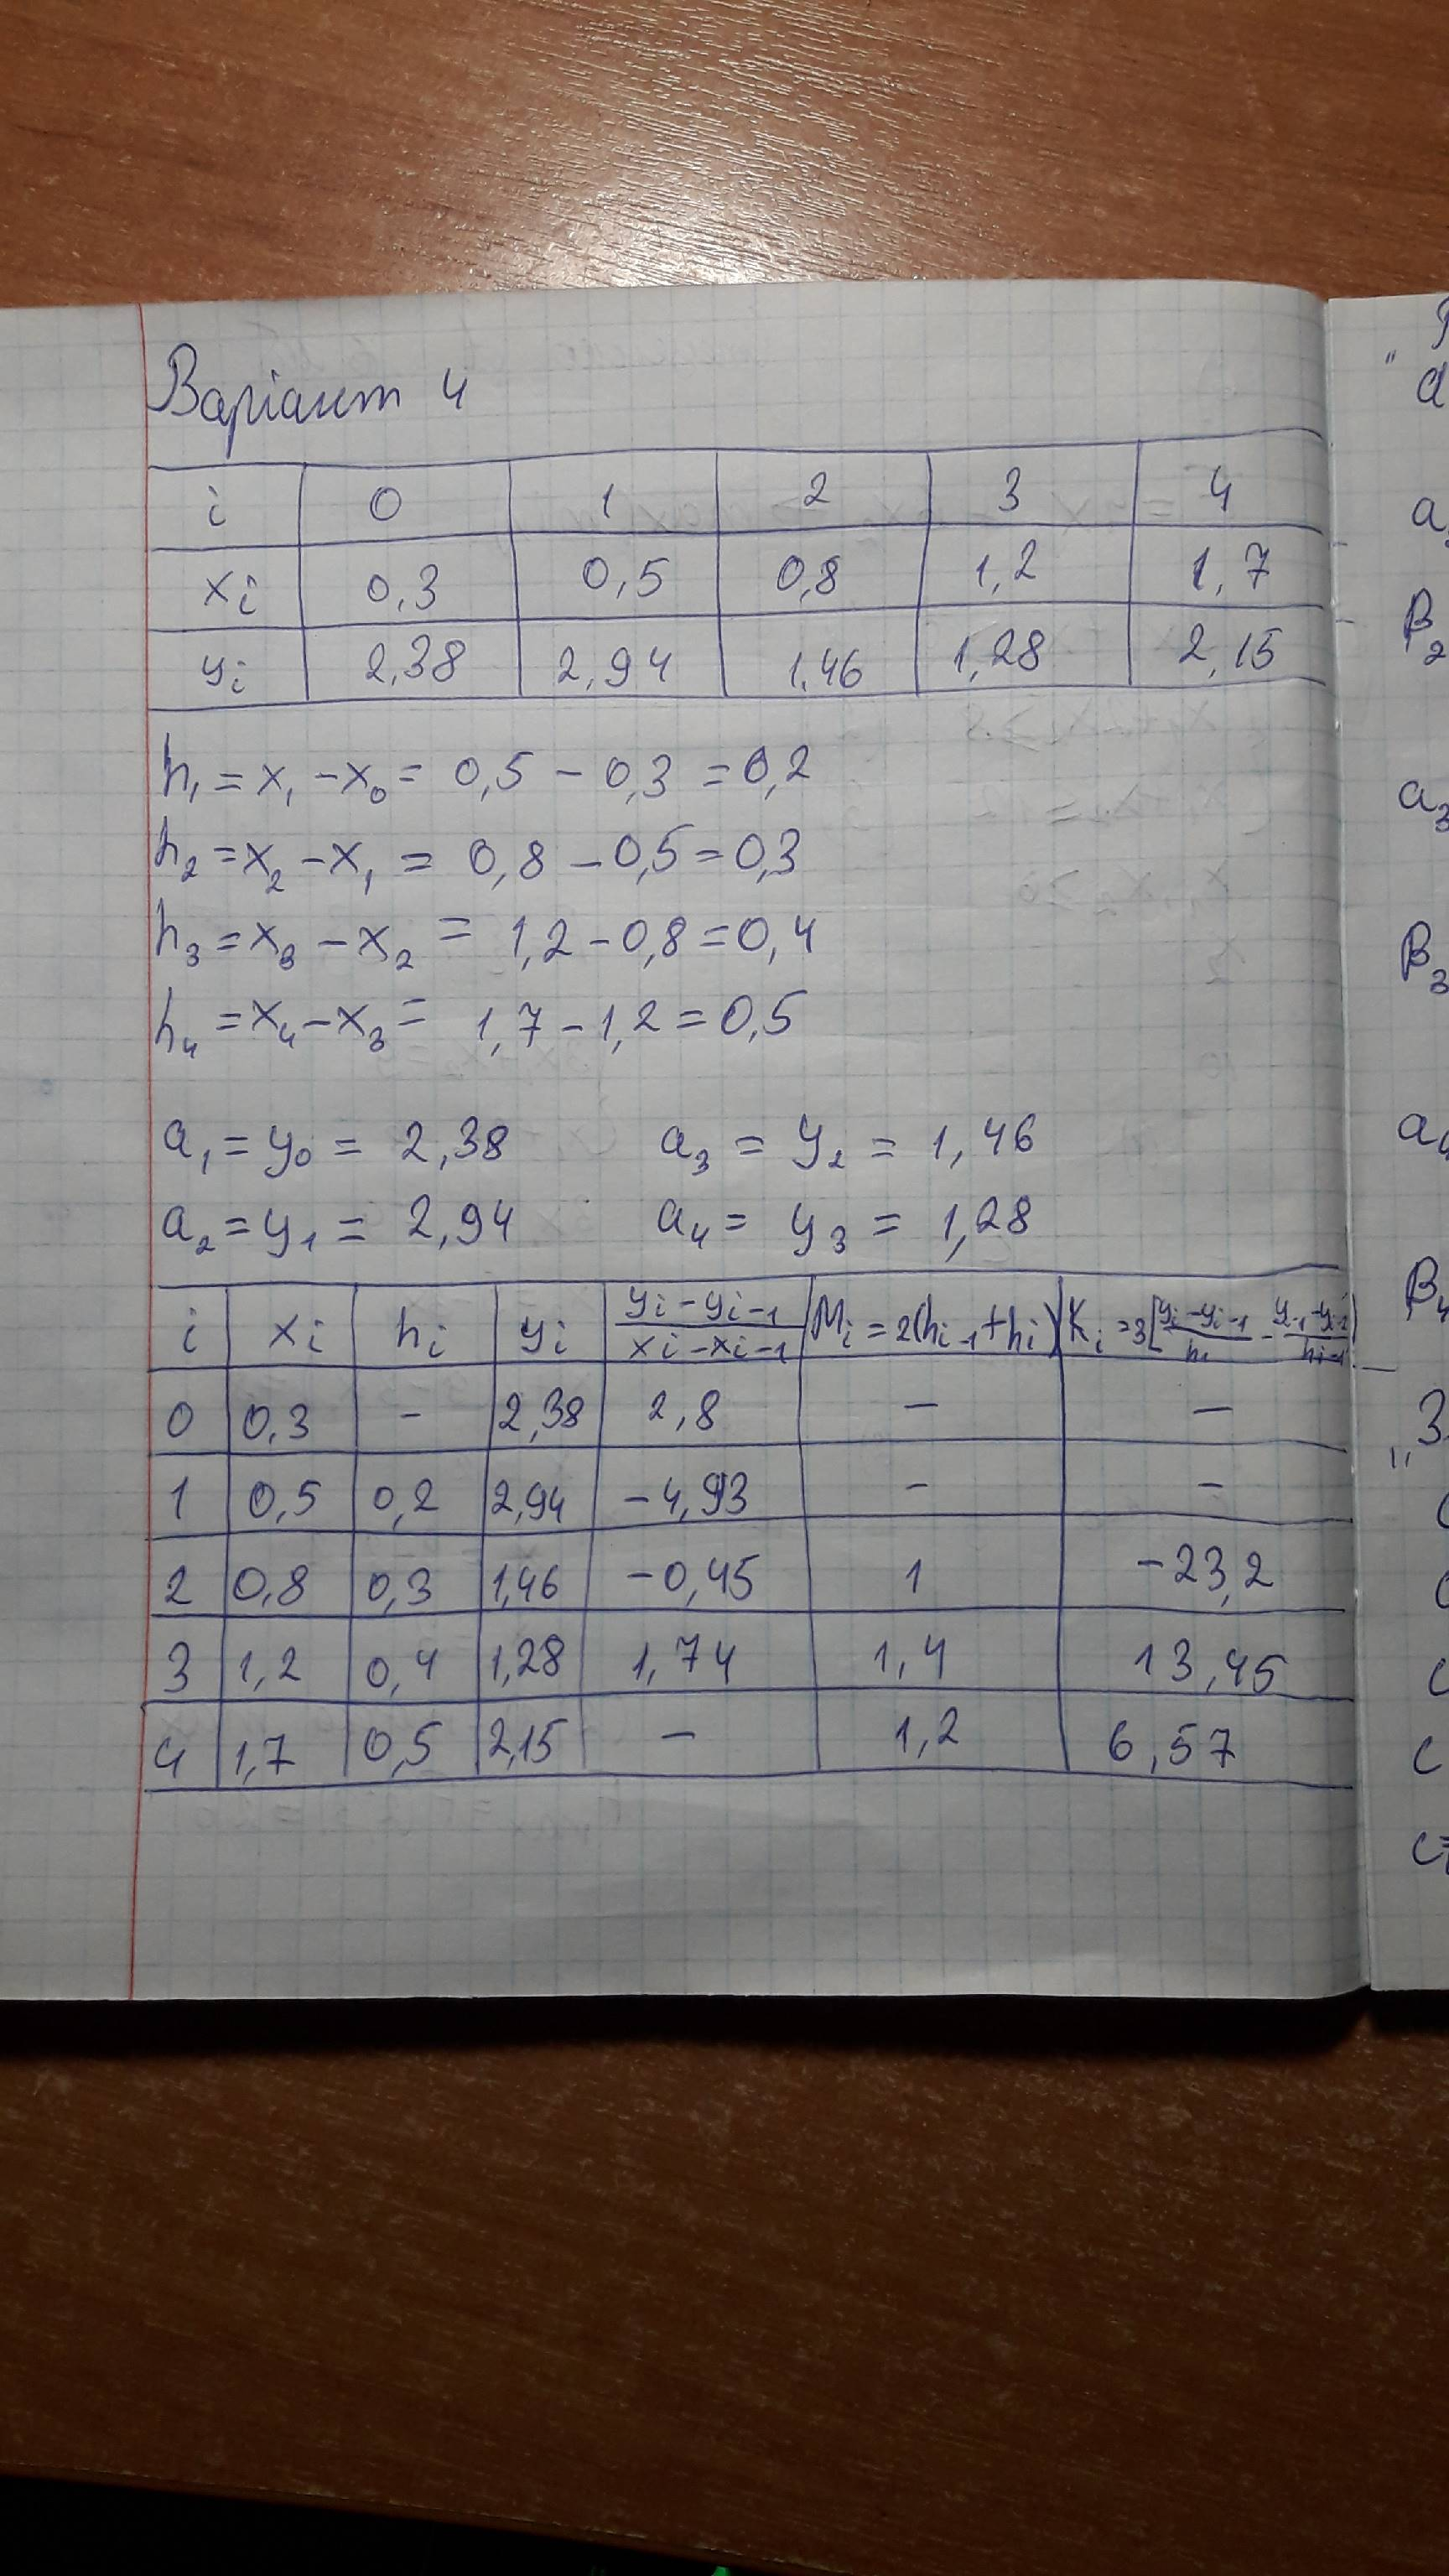 Варіант 4
i 0 1 2 3 4
xi 0,3 0,5 0,8 1,2 1,7
yi 2,38 2,94 1,46 1,28 2,15
h₁ = x₁ - x₀ = 0,5 - 0,3 = 0,2
h₂ = x₂ - x₁ = 0,8 - 0,5 = 0,3
h₃ = x₃ - x₂ = 1,2 - 0,8 = 0,4
h₄ = x₄ - x₃ = 1,7 - 1,2 = 0,5
a₁ = y₀ = 2,38 a₃ = y₂ = 1,46
a₂ = y₁ = 2,94 a₄ = y₃ = 1,28
i xi hi yi (yi - yi-1)/(xi - xi-1) Mi = 2(hi-1 + hi) Ki = 3[(yi - yi-1)/hi - (yi-1 - yi-2)/hi-1]
0 0,3 - 2,38 2,8 - -
1 0,5 0,2 2,94 -4,93 - -
2 0,8 0,3 1,46 -0,45 1 -23,2
3 1,2 0,4 1,28 1,74 1,4 13,45
4 1,7 0,5 2,15 - 1,2 6,57
a₃
B₂
B₃
B₄